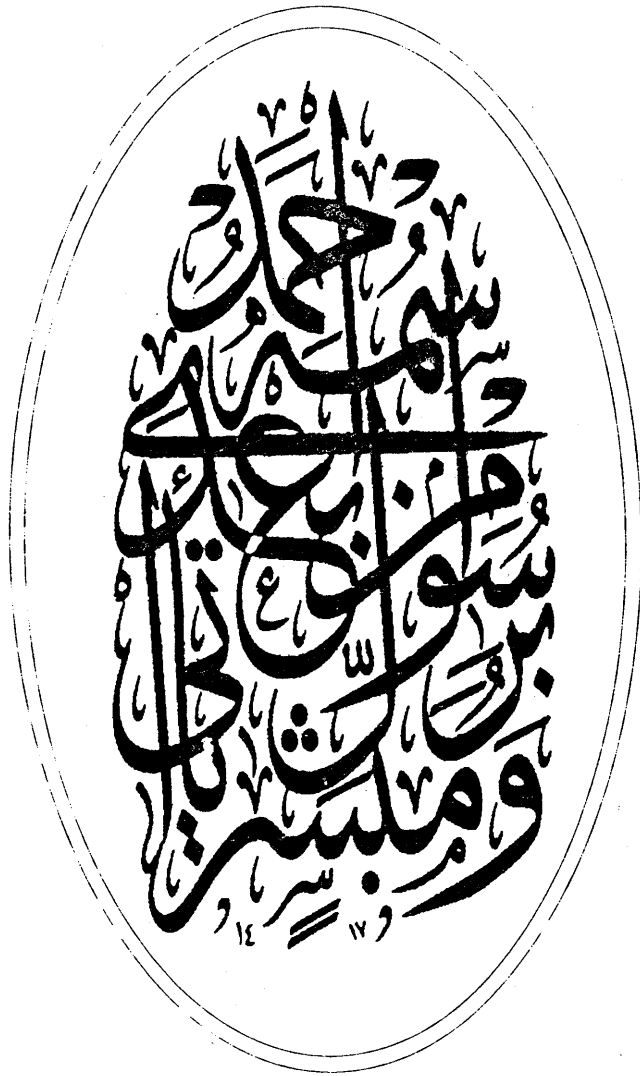 ومبشرا برسول يأتي من بعدي اسمه أحمد
١٤ ١٧